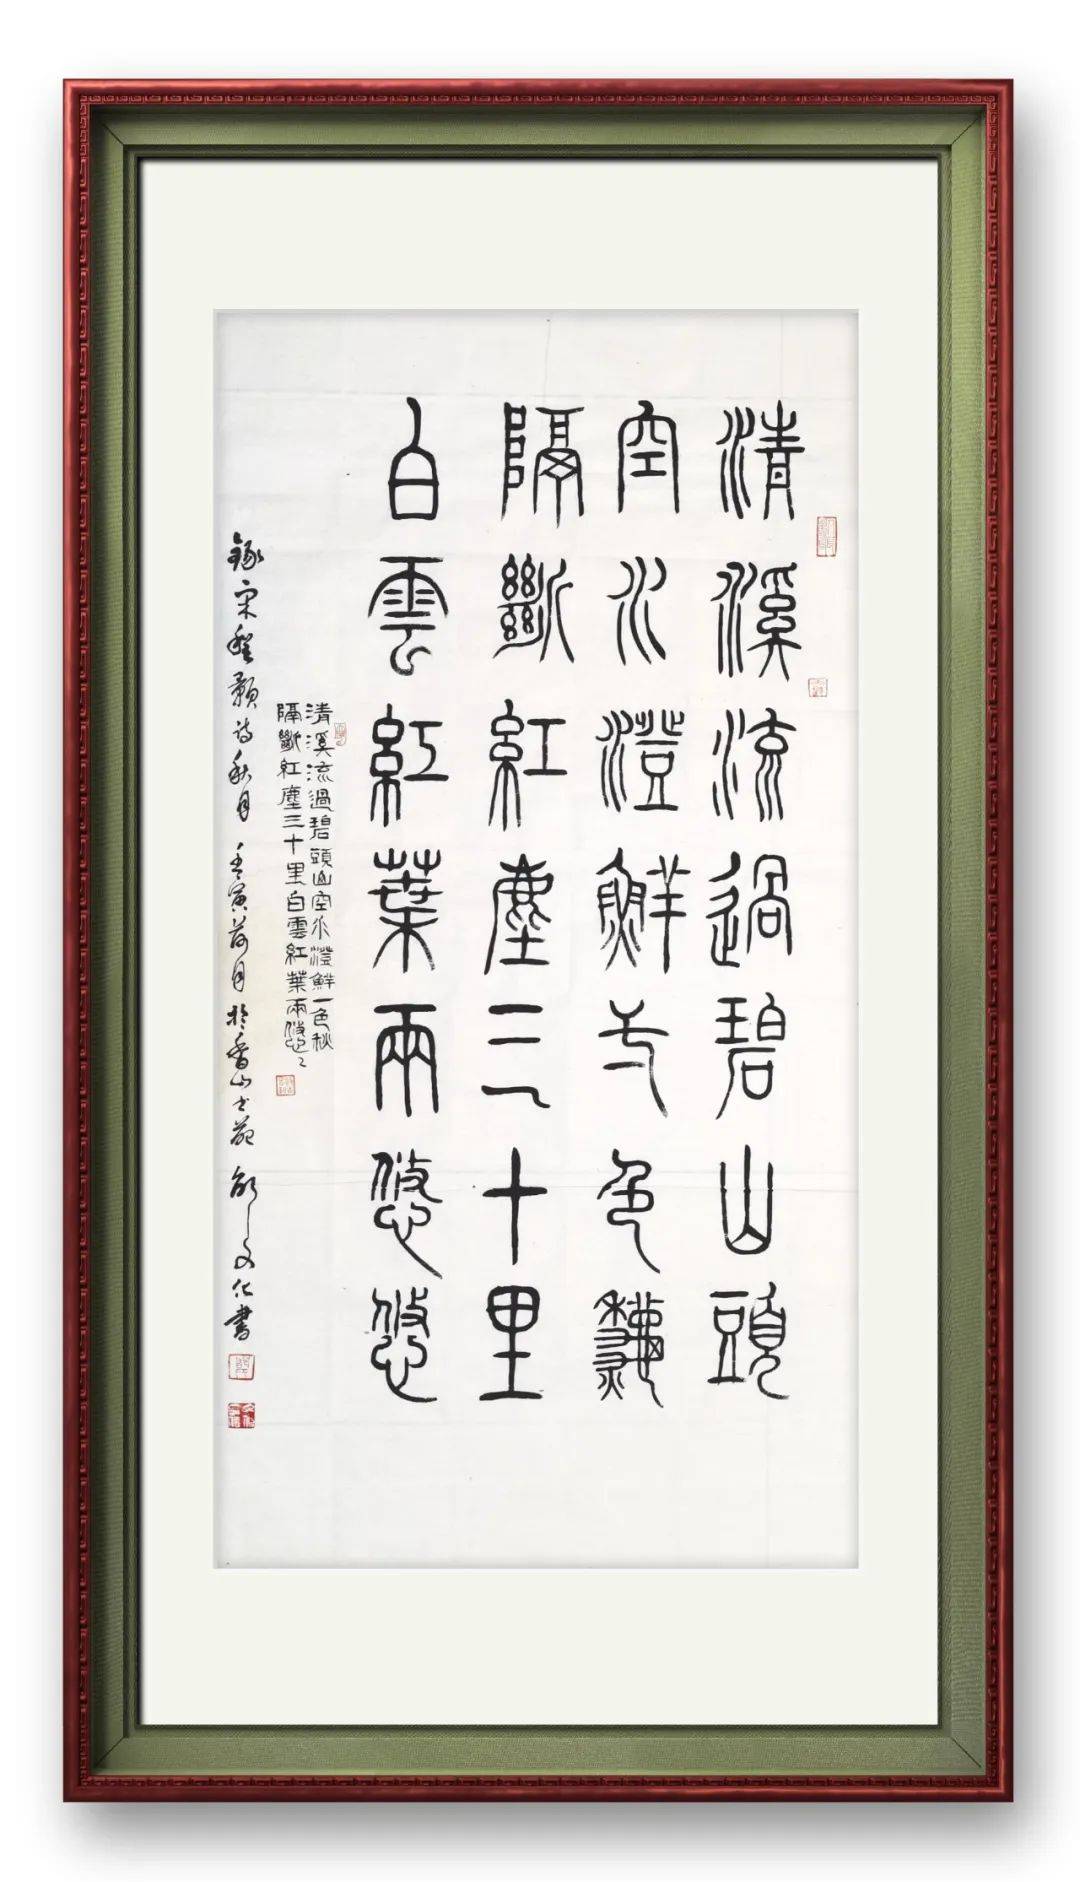 清溪流過碧山頭
空水澄鮮一色秋
隔斷紅塵三十里
白雲紅葉兩悠悠
清溪流過碧頭山空水澄鮮一色秋
隔斷紅塵三十里白雲紅葉兩悠々
錄宋程顥诗秋月 壬寅荷月於香山书苑 文化書